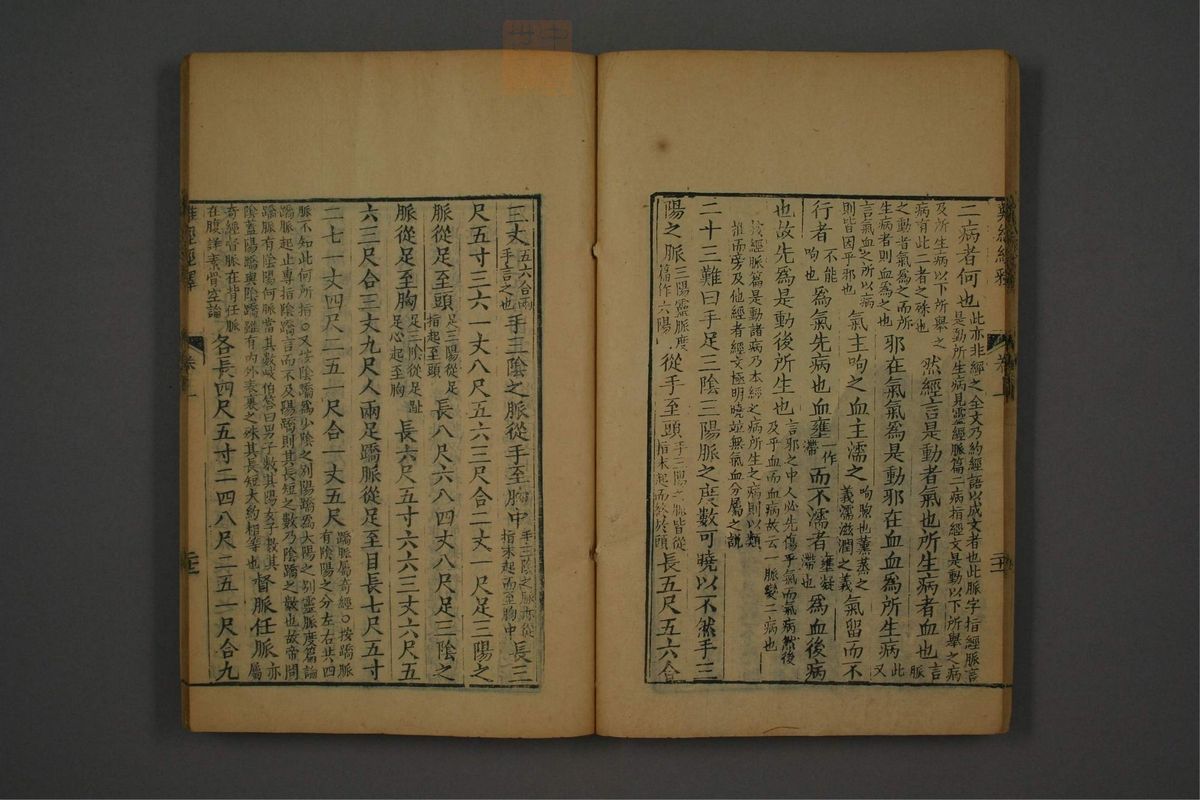 難經經釋 卷上 二十一
二病者何也此亦非經之全文乃約經語以成文者也此脈字指經脈言
是動所生病見靈經脈篇二病指經文是動以下所舉之病
及所生病以下所舉之
病有此二者之殊也
然經言是動者氣也所生病者血也言
脈
之動者氣爲之而所
生病者則血爲之也
邪在氣氣爲是動邪在血血爲所生病此
又
言氣血之所以病
則皆因乎邪也
氣主呴之血主濡之呴喣也薰蒸之
義濡滋潤之義
氣留而不
行者不能
呴也
爲氣先病也血壅一作
滯
而不濡者壅凝
滯也
爲血後病
也故先爲是動後所生也言邪之中人必先傷乎氣而氣病然後
及乎血而血病故云一脈變二病也
按經脈篇是動諸病乃本經之病所生之病則以類
推而旁及他經者經文極明曉並無氣血分屬之說
二十三難曰手足三陰三陽脈之度數可曉以不然手三
陽之脈三陽靈脈度
篇作六陽
從手至頭手三陽之脈皆從
指末起而終於頭
長五尺五六合
三丈五六合兩
手言之也
手三陰之脈從手至胸中手三陰之脈亦從
指末起而至胸中
長三
尺五寸三六一丈八尺五六三尺合二丈一尺足三陽之
脈從足至頭足三陽從足
指起至頭
長八尺六八四丈八尺足三陰之
脈從足至胸足三陰從足趾
足心起至胸
長六尺五寸六六三丈六尺五
六三尺合三丈九尺人兩足蹻脈從足至目長七尺五寸
二七一丈四尺二五一尺合一丈五尺蹻脈屬奇經○按蹻脈
有陰陽之分左右共四
脈不知此何所指○又按陰蹻爲少陰之別陽蹻爲太陽之別靈脈度篇論
蹻脈起止專指陰蹻言而不及陽蹻則其長短之數乃陰蹻之數也故帝問
蹻脈有陰陽何脈當其數岐伯答曰男子數其陽女子數其
陰蓋陽蹻與陰蹻雖有內外表裏之殊其長短大約相等也
督脈任脈亦
屬
奇經督脈在背任脈
在腹詳素骨空論
各長四尺五寸二四八尺二五一尺合九
難經經釋 卷上 二十二